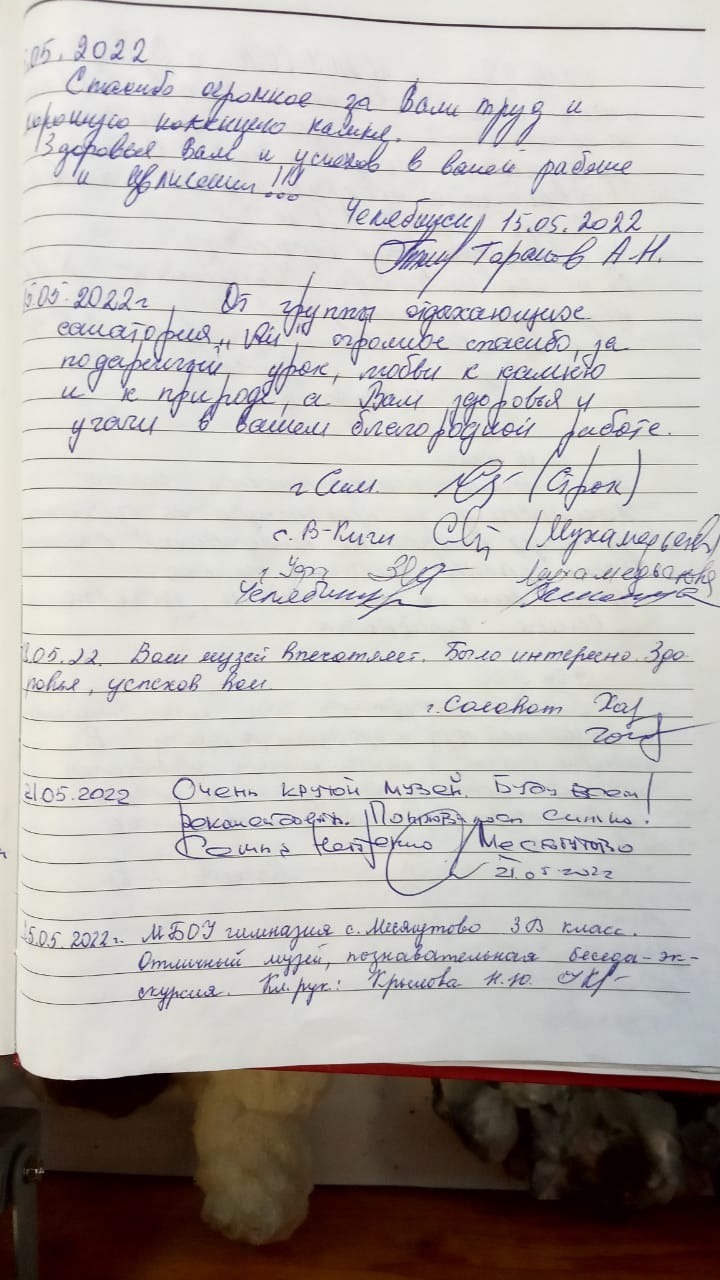 .05.2022
Спасибо огромное за Ваш труд и
хорошую
Здоровья Вам и успехов в вашей работе
и !!!
Челябинск 15.05.2022
Таранов А.Н.
15.05.2022г. От группы отдыхающих
санатория „Ай" огромное спасибо, за
подаренный, урок, любви к камню
и к природе, а Вам здоровья и
удачи в вашей благородной работе.
г. Сим. (Строк)
с. В-Киги (Мухамедьянов)
г. Уфа Мухамедьянова
Челябинск
.05.22. Ваш музей впечатляет. Было интересно. Здо-
ровья, успехов вам.
г. Салават
21.05.2022 Очень крутой музей. Буду всем
рекомендовать. сильно!
Семья Месягутово
21.05.2022
25.05.2022г. МБОУ гимназия с. Месягутово 3В класс.
Отличный музей, познавательная беседа-эк-
скурсия. Кл. рук.: Крылова Н.Ю.